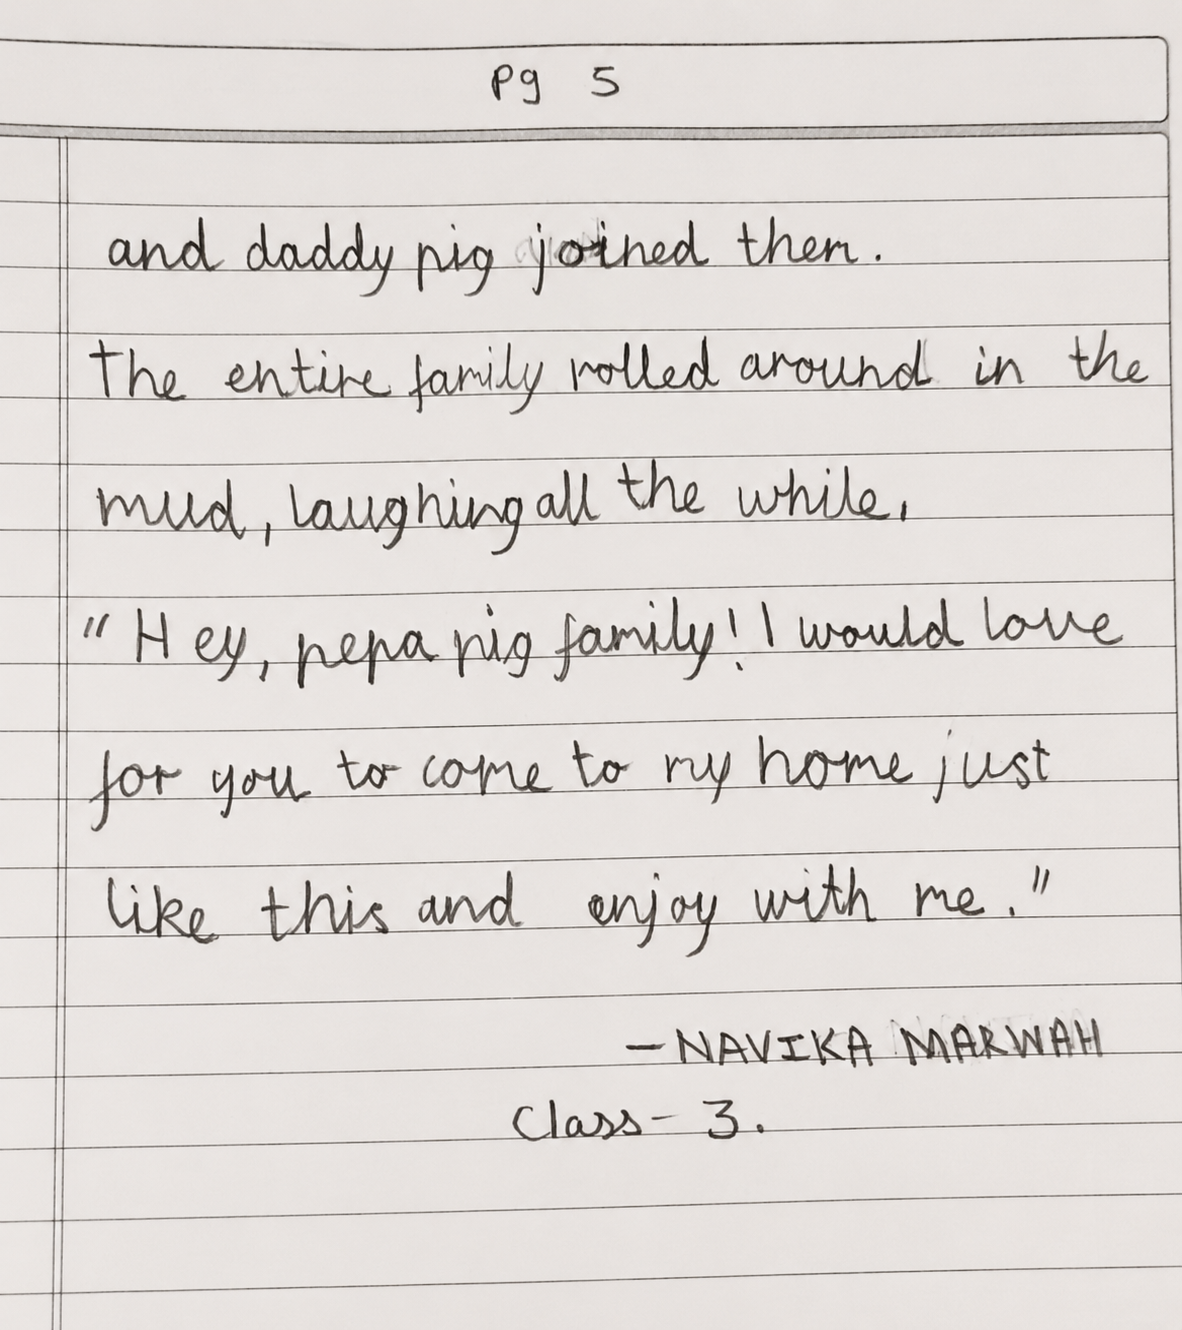 Pg 5
and daddy pig joined them.
The entire family rolled around in the
mud, laughing all the while,
"Hey, pepa pig family! I would love
for you to come to my home just
like this and enjoy with me."
- NAVIKA MARWAH
Class - 3.